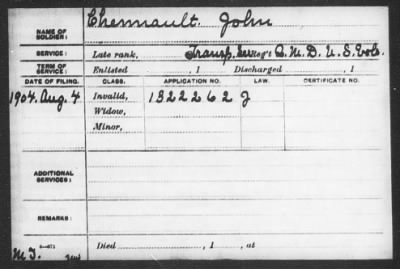 NAME OF SOLDIER: Chennault, John
SERVICE: Late rank, Transp. Serv Reg't Q.M.D. U.S. Vols.
TERM OF SERVICE: Enlisted , 1 Discharged , 1
DATE OF FILING. CLASS. APPLICATION NO. LAW. CERTIFICATE NO.
1904, Aug. 4 Invalid, 1322262 J
Widow,
Minor,
ADDITIONAL SERVICES:
REMARKS:
Died , 1 , at